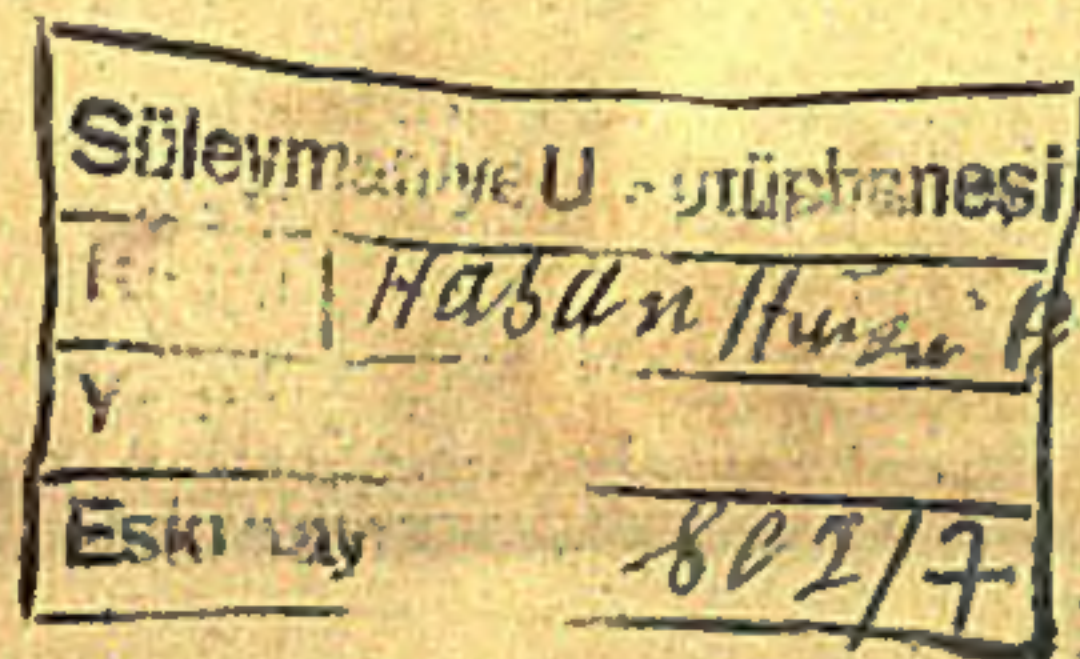 Süleymaniye U. Kütüphanesi
Hasan Hüsnü P
Y
Eski Kay
802/7